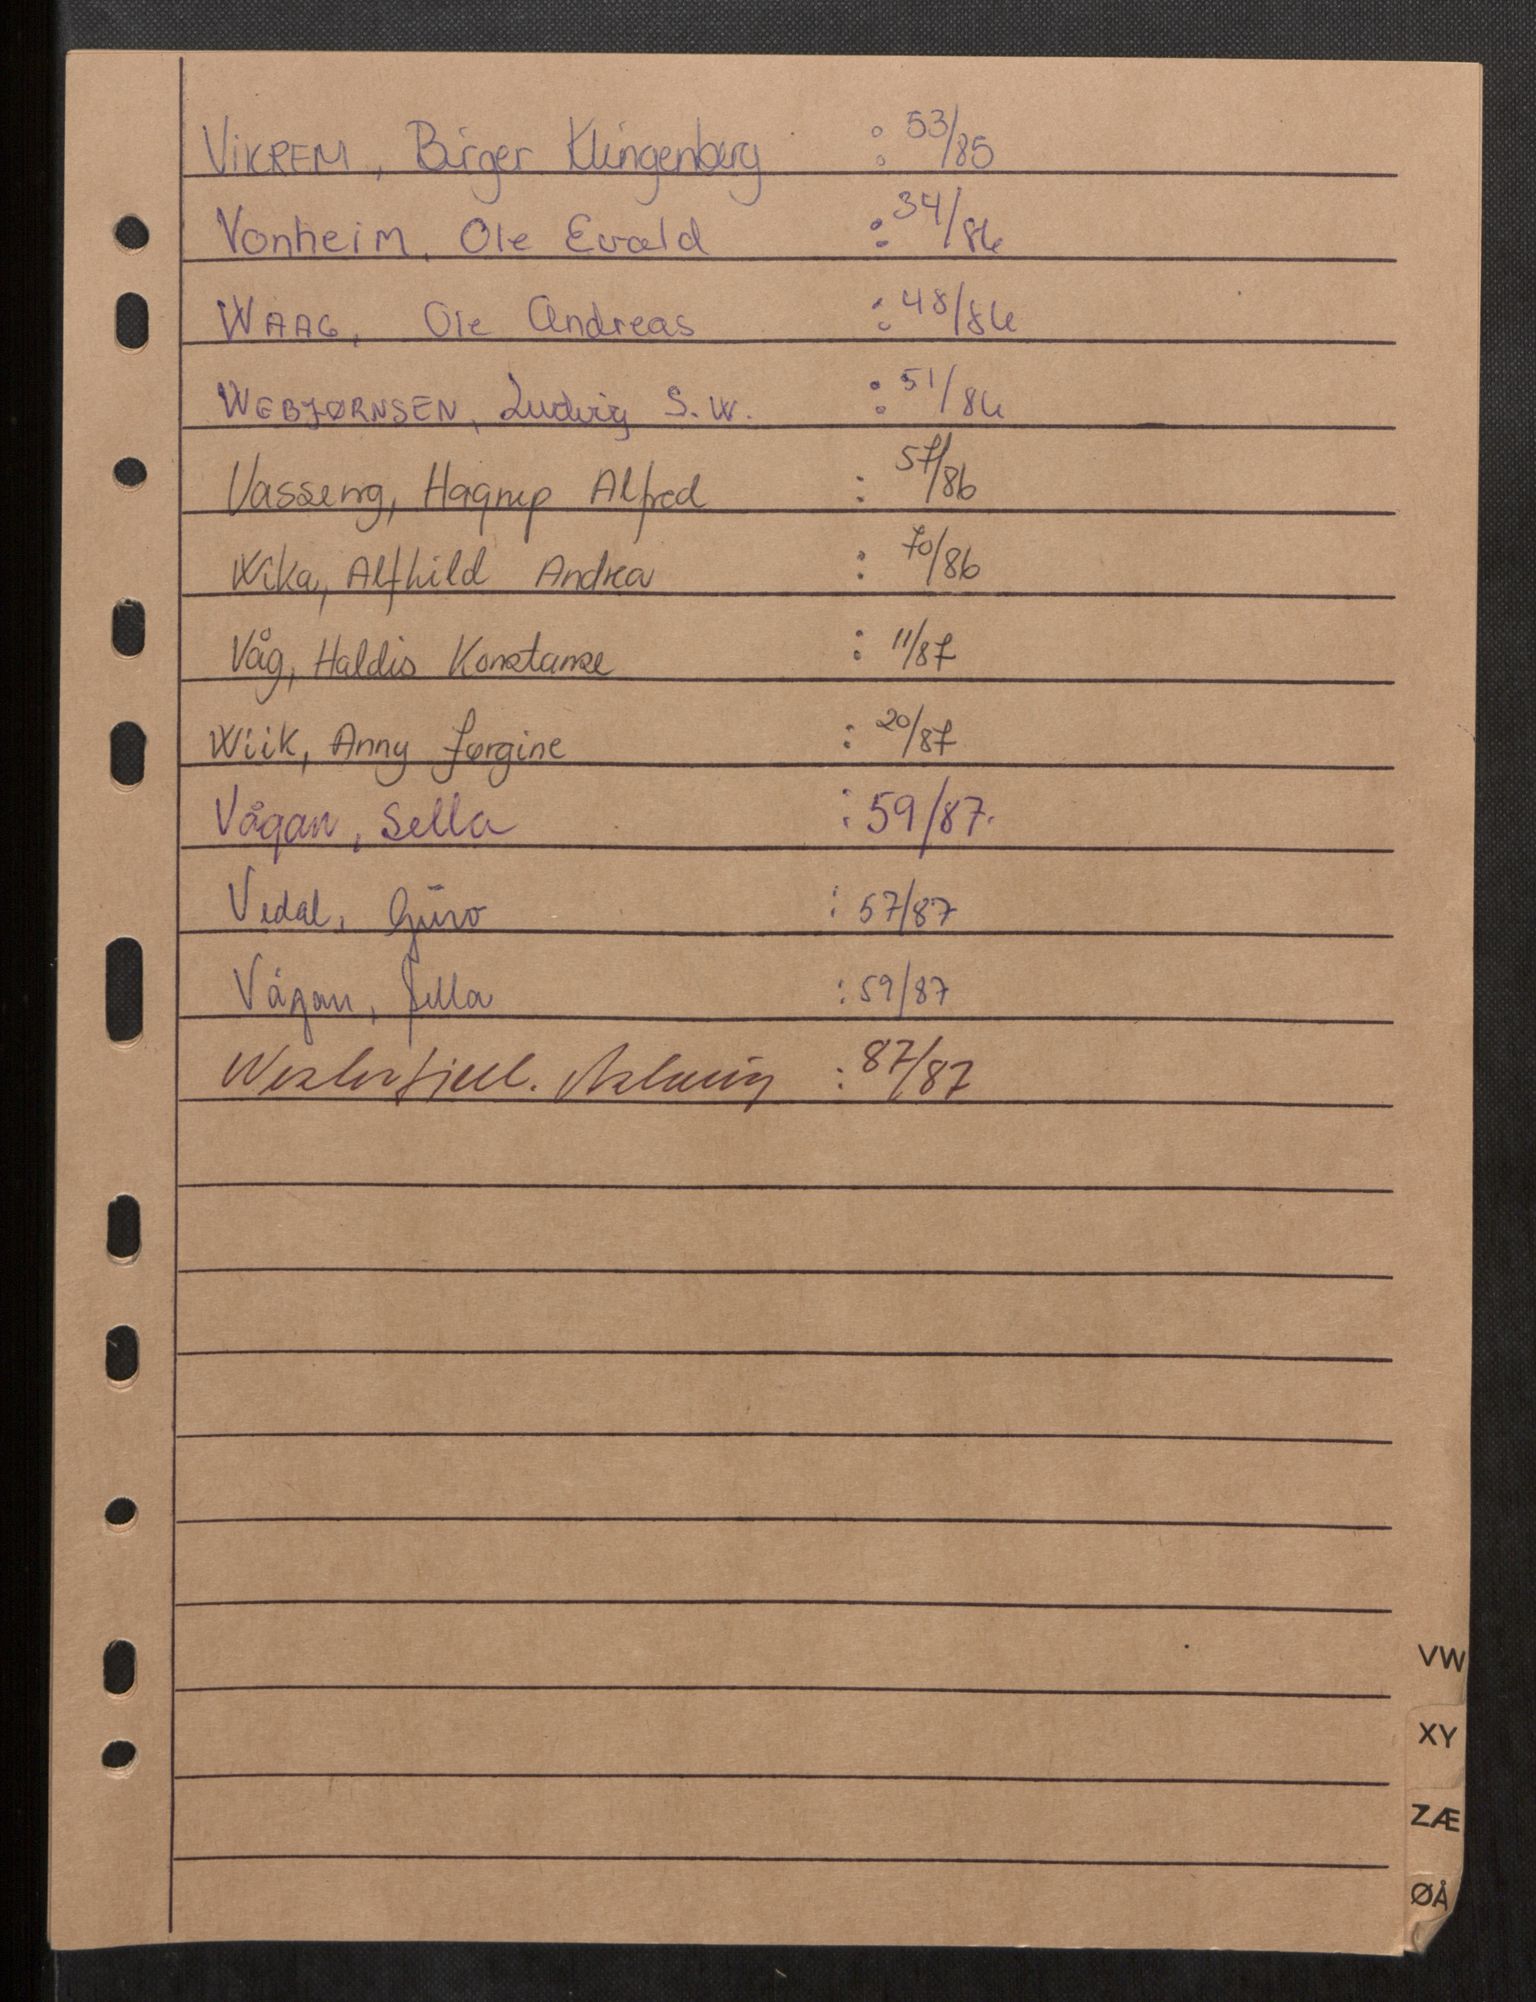 VIKREM, Birger Klingenberg : 53/85
Vonheim, Ole Evald : 34/86
WAAG, Ole Andreas : 48/86
WEBJØRNSEN, Ludvig S.W. : 51/86
Vasseng, Hagrup Alfred : 57/86
Wika, Alfhild Andrea : 70/86
Våg, Haldis Konstanse : 11/87
Wiik, Anny Jørgine : 20/87
Vågan, Sella : 59/87.
Vedal, Guro : 57/87
Vågan, Sella : 59/87
Westerfjell. : 87/87
VW
XY
ZÆ
ØÅ